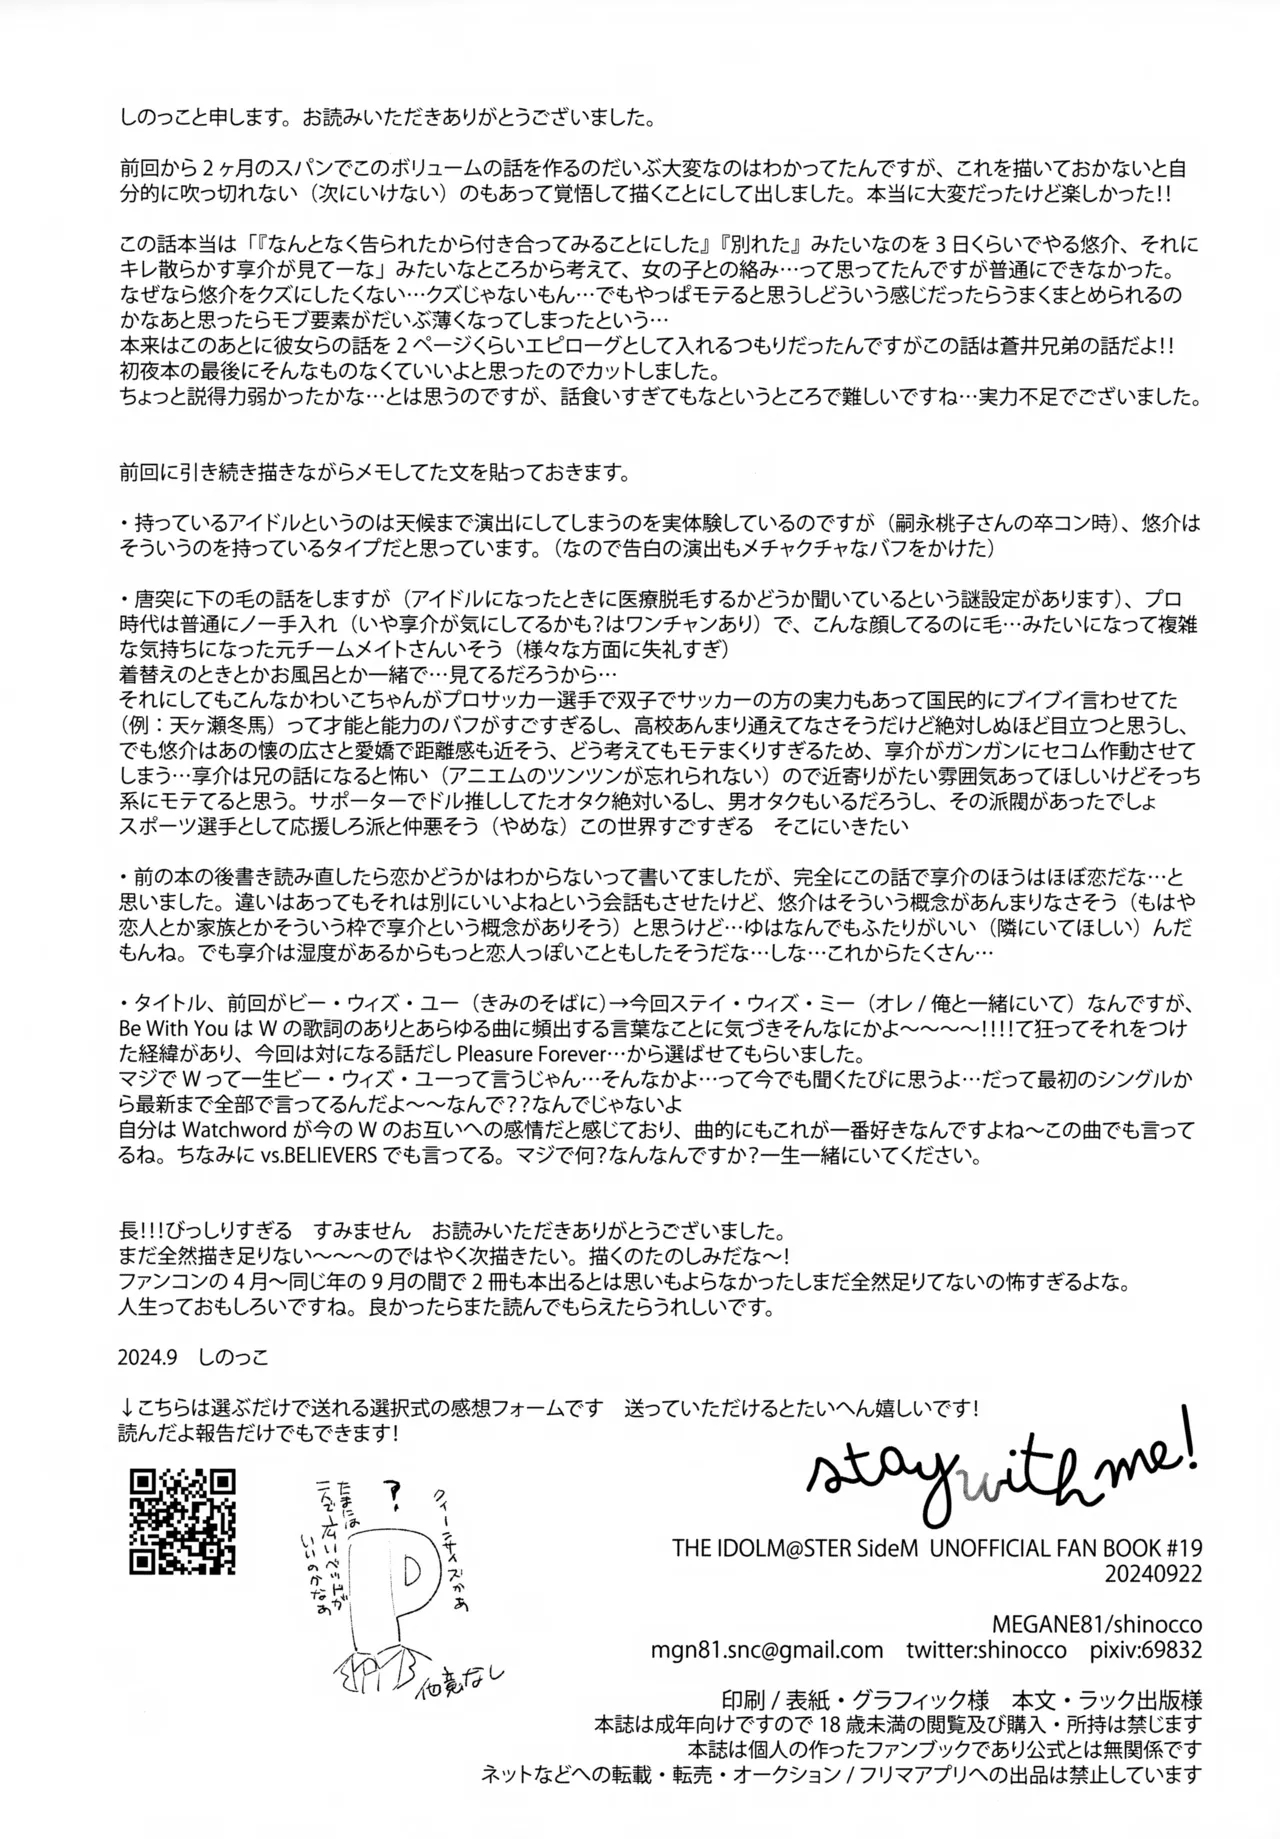 しのっこと申します。お読みいただきありがとうございました。
前回から 2 ヶ月のスパンでこのボリュームの話を作るのだいぶ大変なのはわかってたんですが、これを描いておかないと自
分的に吹っ切れない（次にいけない）のもあって覚悟して描くことにして出しました。本当に大変だったけど楽しかった!!
この話本当は「『なんとなく告られたから付き合ってみることにした』『別れた』みたいなのを 3 日くらいでやる悠介、それに
キレ散らかす享介が見てーな」みたいなところから考えて、女の子との絡み…って思ってたんですが普通にできなかった。
なぜなら悠介をクズにしたくない…クズじゃないもん…でもやっぱモテると思うしどういう感じだったらうまくまとめられるの
かなあと思ったらモブ要素がだいぶ薄くなってしまったという…
本来はこのあとに彼女らの話を 2 ページくらいエピローグとして入れるつもりだったんですがこの話は蒼井兄弟の話だよ!!
初夜本の最後にそんなものなくていいよと思ったのでカットしました。
ちょっと説得力弱かったかな…とは思うのですが、話食いすぎてもなというところで難しいですね…実力不足でございました。
前回に引き続き描きながらメモしてた文を貼っておきます。
・持っているアイドルというのは天候まで演出にしてしまうのを実体験しているのですが（嗣永桃子さんの卒コン時）、悠介は
そういうのを持っているタイプだと思っています。（なので告白の演出もメチャクチャなバフをかけた）
・唐突に下の毛の話をしますが（アイドルになったときに医療脱毛するかどうか聞いているという謎設定があります）、プロ
時代は普通にノー手入れ（いや享介が気にしてるかも?はワンチャンあり）で、こんな顔してるのに毛…みたいになって複雑
な気持ちになった元チームメイトさんいそう（様々な方面に失礼すぎ）
着替えのときとかお風呂とか一緒で…見てるだろうから…
それにしてもこんなかわいこちゃんがプロサッカー選手で双子でサッカーの方の実力もあって国民的にブイブイ言わせてた
（例：天ヶ瀬冬馬）って才能と能力のバフがすごすぎるし、高校あんまり通えてなさそうだけど絶対しぬほど目立つと思うし、
でも悠介はあの懐の広さと愛嬌で距離感も近そう、どう考えてもモテまくりすぎるため、享介がガンガンにセコム作動させて
しまう…享介は兄の話になると怖い（アニエムのツンツンが忘れられない）ので近寄りがたい雰囲気あってほしいけどそっち
系にモテてると思う。サポーターでドル推ししてたオタク絶対いるし、男オタクもいるだろうし、その派閥があったでしょ
スポーツ選手として応援しろ派と仲悪そう（やめな）この世界すごすぎる　そこにいきたい
・前の本の後書き読み直したら恋かどうかはわからないって書いてましたが、完全にこの話で享介のほうはほぼ恋だな…と
思いました。違いはあってもそれは別にいいよねという会話もさせたけど、悠介はそういう概念があんまりなさそう（もはや
恋人とか家族とかそういう枠で享介という概念がありそう）と思うけど…ゆはなんでもふたりがいい（隣にいてほしい）んだ
もんね。でも享介は湿度があるからもっと恋人っぽいこともしたそうだな…しな…これからたくさん…
・タイトル、前回がビー・ウィズ・ユー（きみのそばに）→今回ステイ・ウィズ・ミー（オレ / 俺と一緒にいて）なんですが、
Be With You は W の歌詞のありとあらゆる曲に頻出する言葉なことに気づきそんなにかよ～～～～!!!!て狂ってそれをつけ
た経緯があり、今回は対になる話だし Pleasure Forever…から選ばせてもらいました。
マジで W って一生ビー・ウィズ・ユーって言うじゃん…そんなかよ…って今でも聞くたびに思うよ…だって最初のシングルか
ら最新まで全部で言ってるんだよ～～なんで??なんでじゃないよ
自分は Watchword が今の W のお互いへの感情だと感じており、曲的にもこれが一番好きなんですよね～この曲でも言って
るね。ちなみに vs.BELIEVERS でも言ってる。マジで何?なんなんですか?一生一緒にいてください。
長!!!びっしりすぎる　すみません　お読みいただきありがとうございました。
まだ全然描き足りない～～～のではやく次描きたい。描くのたのしみだな～!
ファンコンの 4 月～同じ年の 9 月の間で 2 冊も本出るとは思いもよらなかったしまだ全然足りてないの怖すぎるよな。
人生っておもしろいですね。良かったらまた読んでもらえたらうれしいです。
2024.9　しのっこ
↓こちらは選ぶだけで送れる選択式の感想フォームです　送っていただけるとたいへん嬉しいです!
読んだよ報告だけでもできます!
stay with me!
クィーンサイズかぁ
?
たまには
こんで広いベッドが
いいのかなぁ
P
他意なし
THE IDOLM@STER SideM UNOFFICIAL FAN BOOK #19
20240922
MEGANE81/shinocco
mgn81.snc@gmail.com　twitter:shinocco　pixiv:69832
印刷 / 表紙・グラフィック様　本文・ラック出版様
本誌は成年向けですので 18 歳未満の閲覧及び購入・所持は禁じます
本誌は個人の作ったファンブックであり公式とは無関係です
ネットなどへの転載・転売・オークション / フリマアプリへの出品は禁止しています